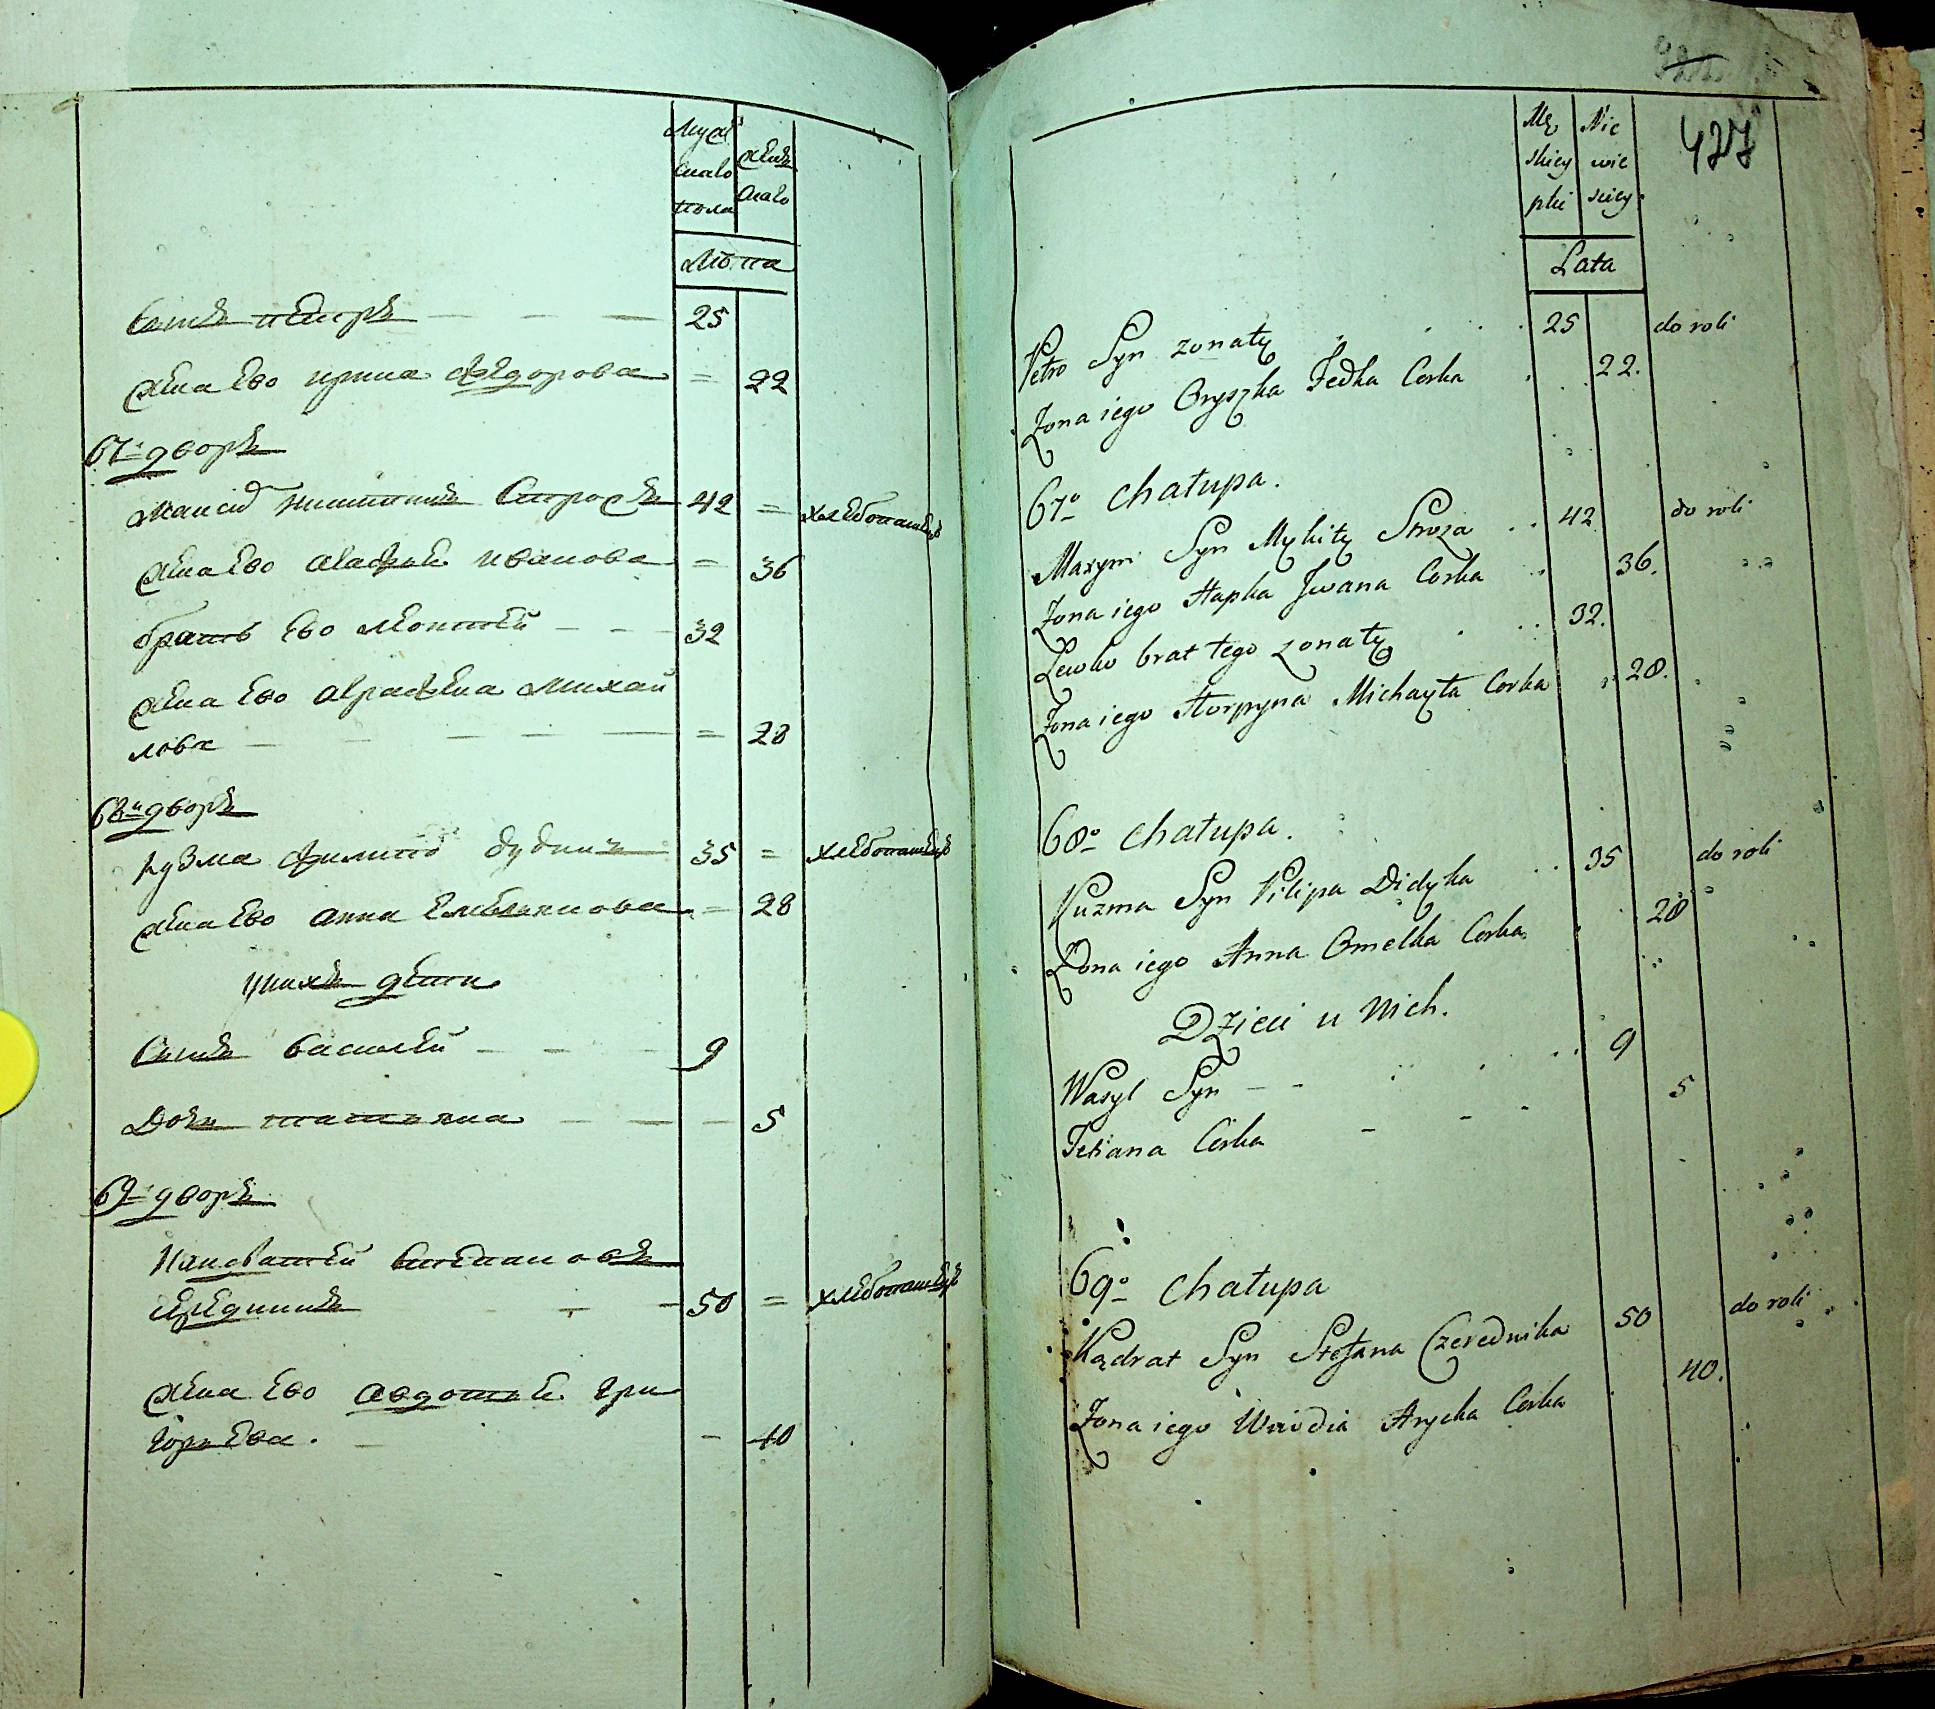 Мужеска пола
женска
Лѣта
Сынъ петръ 25
жена Ево ирина Федорова = 22
67й дворъ
Максим никитинъ Сторожъ 42 = хлебопашецъ
жена Ево агафия иванова = 36
братъ Ево леонтей 32
жена Ево аграфена михаи
лова = 28
68й дворъ
кузма филипо 35 = хлебопашецъ
жена Ево анна Емельянова = 28
у нихъ дети
Сынъ василей 9
Дочь татьяна 5
69й дворъ
Степановъ
чередникъ 50 = хлебопашецъ
жена Ево авдотья гри
горьева. 40
427
Męskiey płci
Niewieściey
Lata
Petro Syn zonaty 25 do roli
Zona iego Oryszka Fedka Corka 22.
67o Chałupa.
Maxym Syn Mykity Stroza 42 do roli
Zona iego Hapka Jwana Corka 36.
Lewko brat tego zonaty 32.
Zona iego Horpyna Michayła Corka 28.
68o Chałupa.
Kuzma Syn Pilipa Didyka 35 do roli
Zona iego Anna Omelka Corka 28
Dzieci u Nich.
Wasyl Syn 9
Tetiana Corka 5
69o Chałupa
Kądrat Syn Stefana Czerednika 50 do roli
Zona iego Hrycka Corka 40.